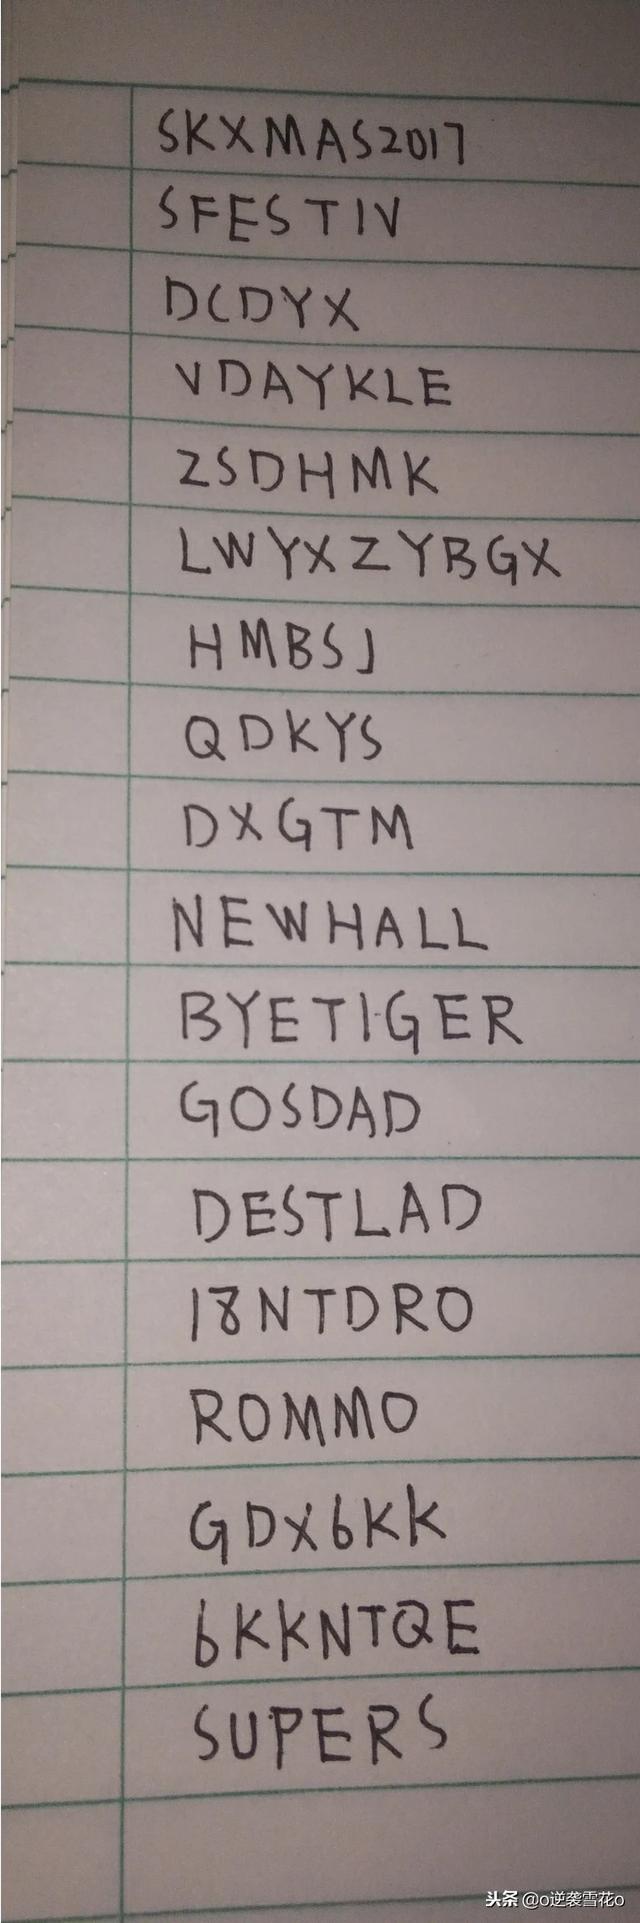 SKXMAS2017
SFESTIV
DCDYX
VDAYKLE
ZSDHMK
LWYXZYBGX
HMBSJ
QDKYS
DXGTM
NEWHALL
BYETIGER
GOSDAD
DESTLAD
18NTDRO
ROMMO
GDX6KK
6KKNTQE
SUPERS
头条 @o逆袭雪花o